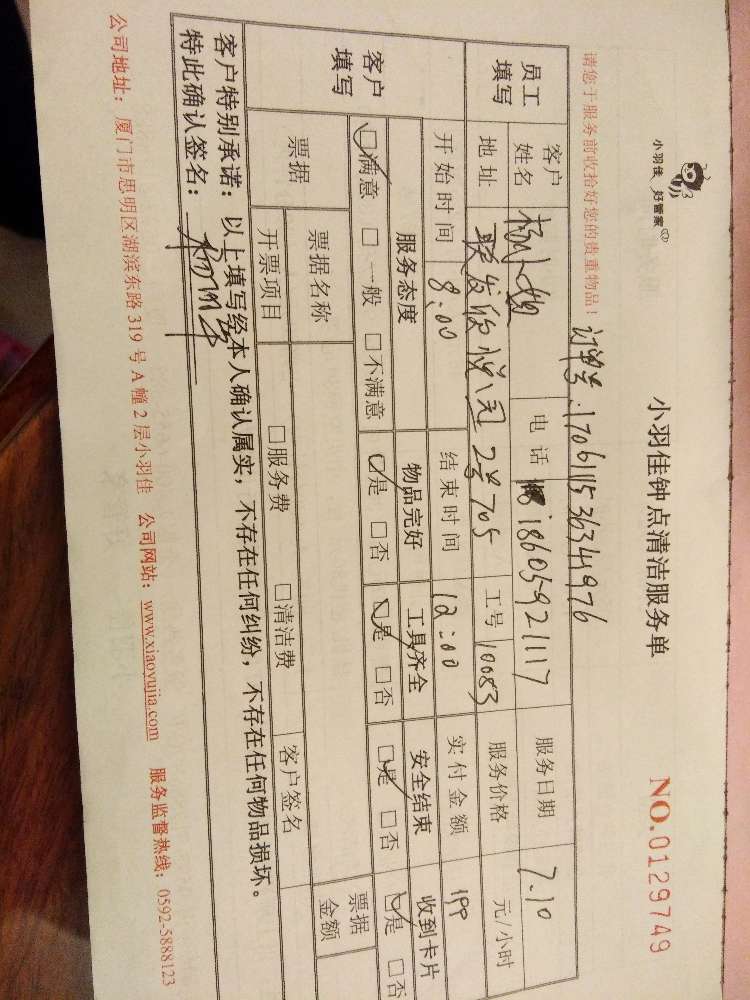 小羽佳 好管家
小羽佳钟点清洁服务单
NO.0129749
请您于服务前收拾好您的贵重物品！
订单号:1706111536341976
员工填写
客户姓名 杨小姐 电话 18605921117 服务日期 7.10
地址 联发欣悦 2号705 工号 10083 服务价格 元/小时
开始时间 8:00 结束时间 12:00 实付金额 199
客户填写
服务态度 物品完好 工具齐全 安全结束 收到卡片
□满意 □一般 □不满意 □是 □否 □是 □否 □是 □否 □是 □否
票据 票据名称 票据金额
开票项目 □服务费 □清洁费 客户签名
客户特别承诺：以上填写经本人确认属实，不存在任何纠纷，不存在任何物品损坏。
特此确认签名：
公司地址：厦门市思明区湖滨东路319号A幢2层小羽佳 公司网站：www.xiaoyujia.com 服务监督热线：0592-5888123